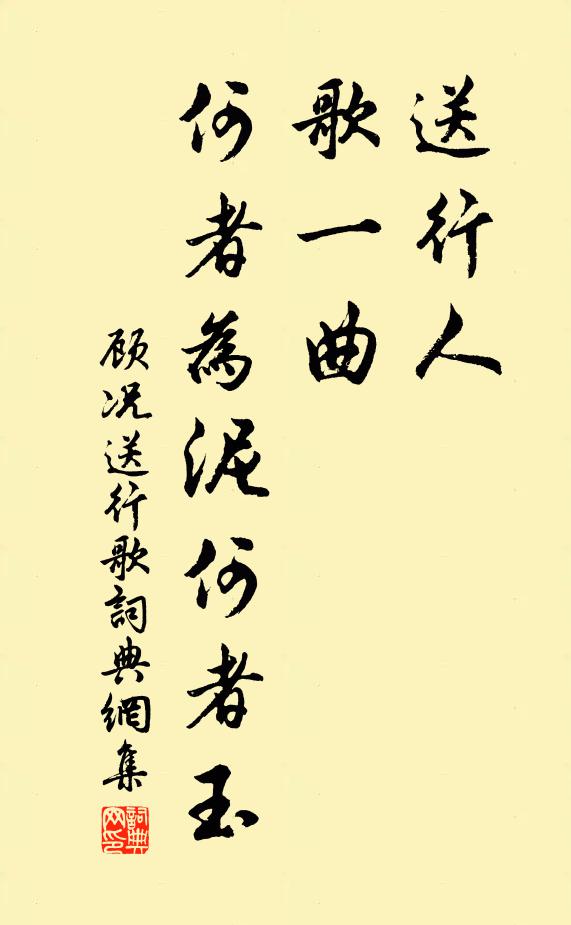 送行人
歌一曲
何者為泥何者玉
顾况送行歌詞典網集
詞典
网印